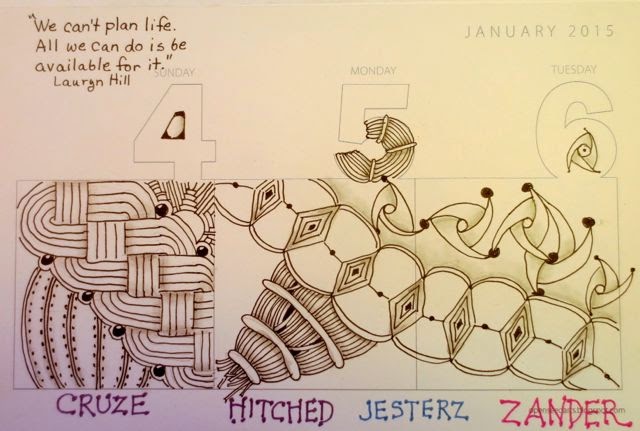 "We can't plan life.
All we can do is be
available for it."
Lauryn Hill
JANUARY 2015
SUNDAY
MONDAY
TUESDAY
4
5
6
CRUZE HITCHED JESTERZ ZANDER
openseedarts.blogspot.com